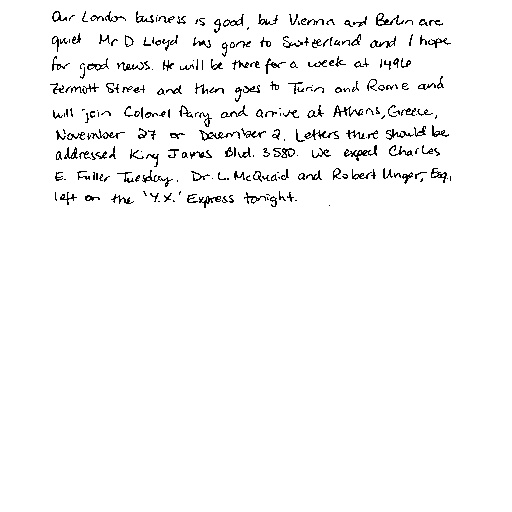 Our London business is good, but Vienna and Berlin are
quiet Mr D Lloyd has gone to Switzerland and I hope
for good news. He will be there for a week at 1496
Zermott Street and then goes to Turin and Rome and
will join Colonel Parry and arrive at Athens, Greece,
November 27 or December 2. Letters there should be
addressed King James Blvd. 3580. We expect Charles
E. Fuller Tuesday. Dr. L. McQuaid and Robert Unger, Esq,
left on the 'Y.X.' Express tonight.